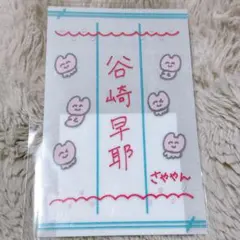 谷崎早耶
さややん